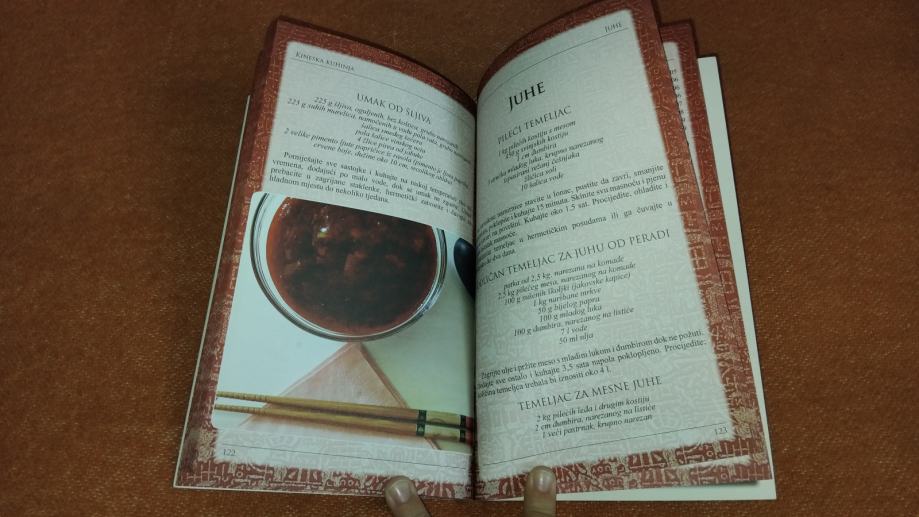 KINESKA KUHINJA
UMAK OD ŠLJIVA
225 g šljiva, oguljenih, bez koštica, grubo narezanih
225 g suhih marelica, namočenih u vodu pola sata, grubo
šalica smeđeg šećera
pola šalice vinskog octa
4 žlice pirea od jabuke
2 velike pimento ljute papričice iz rasola (pimento je ljuta paprika
crvene boje, dužine oko 10 cm, srcolikog oblika)
Pomiješajte sve sastojke i kuhajte na niskoj temperaturi
vremena, dodajući po malo vode, dok se umak ne zgusne.
prebacite u zagrijane staklenke, hermetički zatvorite i čuvajte
hladnom mjestu do nekoliko tjedana.
122
JUHE
JUHE
PILEĆI TEMELJAC
1 kg pilećih kostiju s mesom
250 g svinjskih kostiju
1 cm đumbira
mladog luka, krupno narezanog
češnjaka
žličica soli
10 šalica vode
stavite u lonac, pustite da zavri, smanjite
poklopite i kuhajte 15 minuta. Skinite svu masnoću i pjenu
na površini. Kuhajte oko 1,5 sat. Procijedite, ohladite i
masnoće.
temeljac u hermetičkim posudama ili ga čuvajte u
dva dana.
TEMELJAC ZA JUHU OD PERADI
patka od 2,5 kg, narezana na komade
2,5 kg pilećeg mesa, narezanog na komade
100 g sušenih školjki (jakovske kapice)
1 kg naribane mrkve
50 g bijelog papra
100 g mladog luka
100 g đumbira, narezanog na listiće
7 l vode
50 ml ulja
Zagrijte ulje i pržite meso s mladim lukom i đumbirom dok ne požuti.
Dodajte sve ostalo i kuhajte 3,5 sata napola poklopljeno. Procijedite;
količina temeljca trebala bi iznositi oko 4 l.
TEMELJAC ZA MESNE JUHE
2 kg pilećih leđa i drugim kostiju
2 cm đumbira, narezanog na listiće
1 veći pastrnak, krupno narezan
123